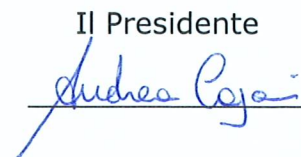 Il Presidente
Andrea